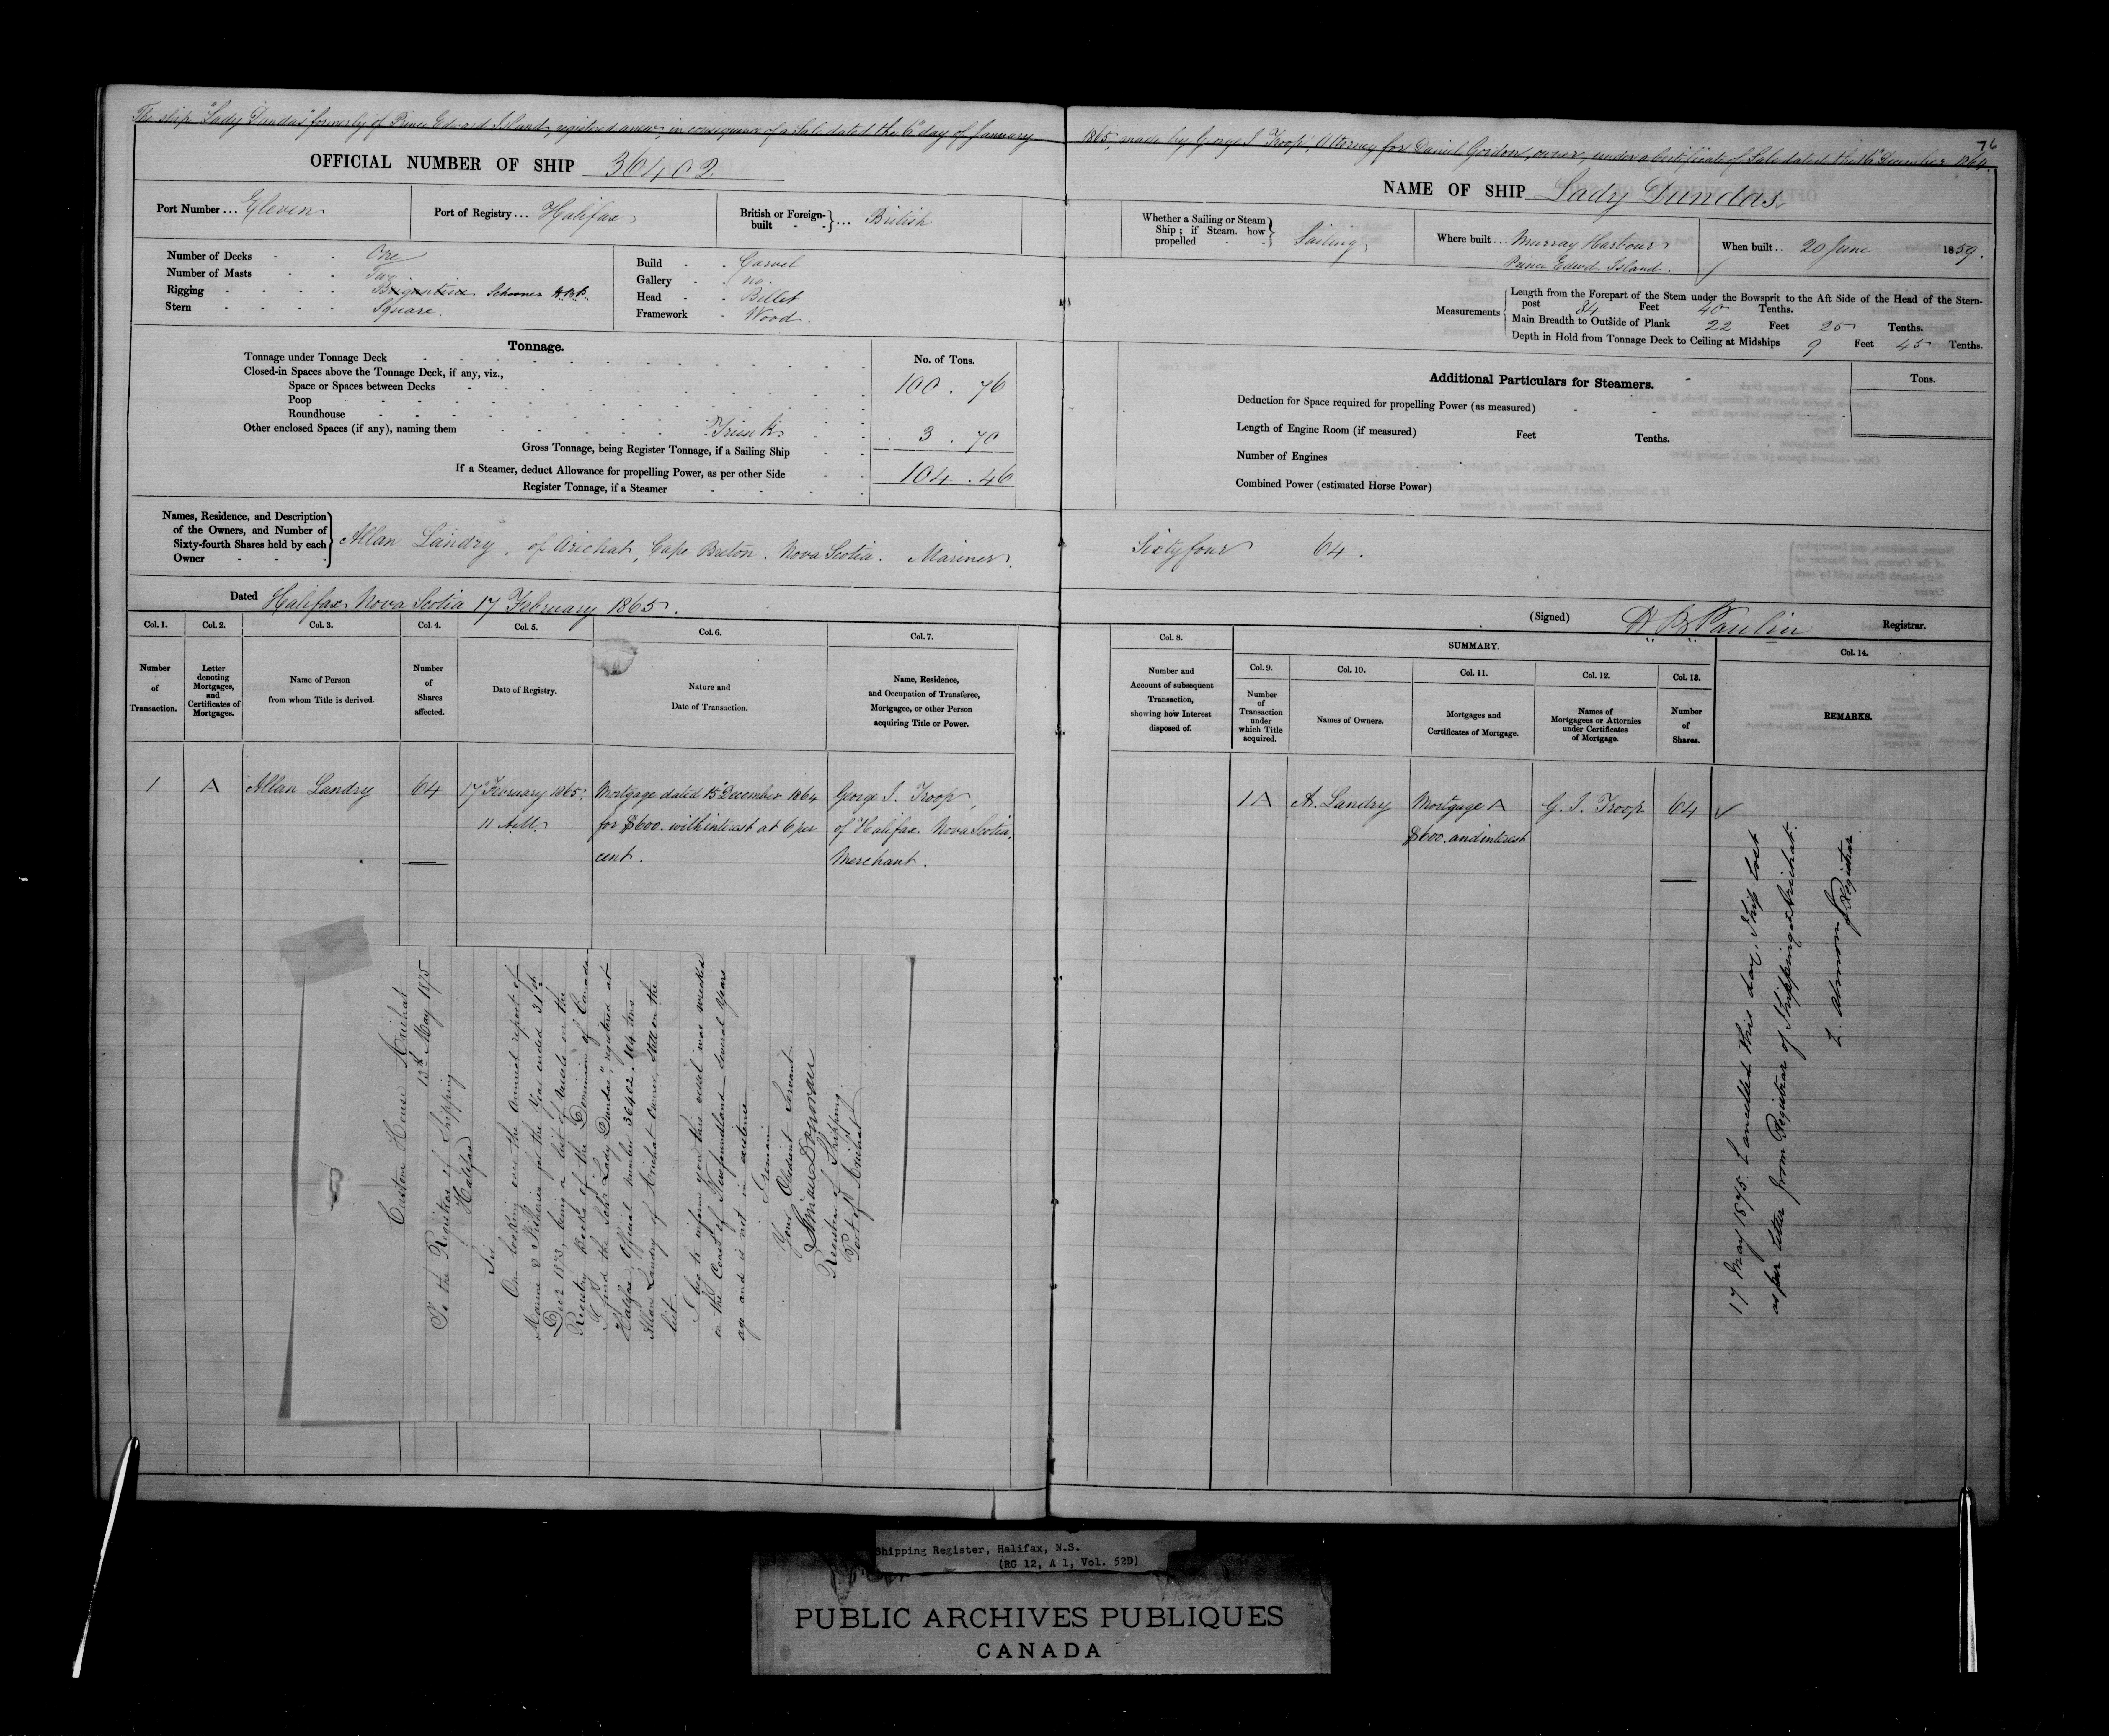 76
The ship "Lady Dundas" formerly of Prince Edward Island, registered anew, in consequence of a Sale dated the 6th day of January 1865, made by George J. Troop, Attorney for Daniel Gordon, owner, under a Certificate of Sale dated the 16 December 1864.
OFFICIAL NUMBER OF SHIP 36402
NAME OF SHIP Lady Dundas
Port Number ... Eleven
Port of Registry ... Halifax
British or Foreign-built ... British
Whether a Sailing or Steam Ship; if Steam. how propelled Sailing
Where built ... Murray Harbour
Prince Edwd. Island.
When built .. 20 June 1859.
Number of Decks - - One
Number of Masts - - Two
Rigging - - - - Brigantine Schooner
Stern - - - - Square.
Build - - Carvel
Gallery - - no.
Head - - Billet
Framework - Wood.
Measurements
Length from the Forepart of the Stem under the Bowsprit to the Aft Side of the Head of the Stern-
post 84 Feet 40 Tenths.
Main Breadth to Outside of Plank 22 Feet 25 Tenths.
Depth in Hold from Tonnage Deck to Ceiling at Midships 9 Feet 45 Tenths.
Tonnage.
No. of Tons.
Tonnage under Tonnage Deck 100 . 76
Closed-in Spaces above the Tonnage Deck, if any, viz.,
Space or Spaces between Decks
Poop
Roundhouse
Other enclosed Spaces (if any), naming them Trunk 3 . 70
Gross Tonnage, being Register Tonnage, if a Sailing Ship
104 . 46
If a Steamer, deduct Allowance for propelling Power, as per other Side
Register Tonnage, if a Steamer
Additional Particulars for Steamers.
Tons.
Deduction for Space required for propelling Power (as measured)
Length of Engine Room (if measured) Feet Tenths.
Number of Engines
Combined Power (estimated Horse Power)
Names, Residence, and Description
of the Owners, and Number of
Sixty-fourth Shares held by each
Owner
Allan Landry, of Arichat, Cape Breton. Nova Scotia. Mariner. Sixty four 64.
Dated Halifax Nova Scotia 17 February 1865.
(Signed) Paulin Registrar.
Col. 1. Number of Transaction.
Col. 2. Letter denoting Mortgages, and Certificates of Mortgages.
Col. 3. Name of Person from whom Title is derived.
Col. 4. Number of Shares affected.
Col. 5. Date of Registry.
Col. 6. Nature and Date of Transaction.
Col. 7. Name, Residence, and Occupation of Transferee, Mortgagee, or other Person acquiring Title or Power.
Col. 8. Number and Account of subsequent Transaction, showing how Interest disposed of.
SUMMARY.
Col. 9. Number of Transaction under which Title acquired.
Col. 10. Names of Owners.
Col. 11. Mortgages and Certificates of Mortgage.
Col. 12. Names of Mortgagees or Attornies under Certificates of Mortgage.
Col. 13. Number of Shares.
Col. 14. REMARKS.
1 A Allan Landry 64 17 February 1865. Mortgage dated 15 December 1864 George J. Troop,
11 A.M. for $600. with interest at 6 per of Halifax. Nova Scotia.
cent. Merchant.
1 A A. Landry Mortgage A G. J. Troop 64
$600. and interest
17 May 1875. Cancelled this day. Ship Lost
as per letter from Registrar of Shipping at Arichat.
Almon
Registrar
Custom House Arichat
13th May 1875
To the Registrar of Shipping
Halifax
Sir
On looking over the Annual report of
Marine & Fisheries for the Year ended 31st
Decr 1873, being a list of Vessels on the
Registry Books of the Dominion of Canada
I find the Schr "Lady Dundas", registered at
Halifax, Official number 36402, 104 tons
Allan Landry of Arichat owner, Still on the
list.
I beg to inform you this vessel was wrecked
on the Coast of Newfoundland several years
ago and is not in existence
I remain
Your Obedient Servant
Donovan
Registrar of Shipping
Port of Arichat
Shipping Register, Halifax, N.S.
(RG 12, A 1, Vol. 52D)
PUBLIC ARCHIVES PUBLIQUES
CANADA